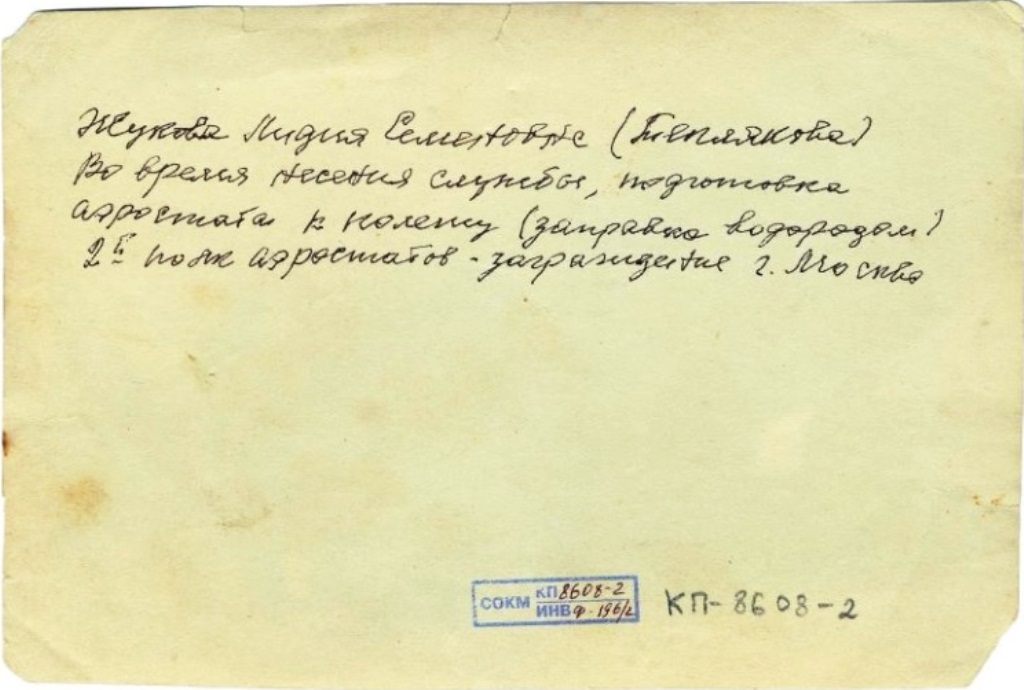 Жукова Лидия Семеновна (Теплякова)
Во время несения службы, подготовка
аэростата к полету (заправка водородом)
2й полк аэростатов - заграждение г. Москва
СОКМ КП 8608-2
ИНВ Ф-196/2
КП-8608-2